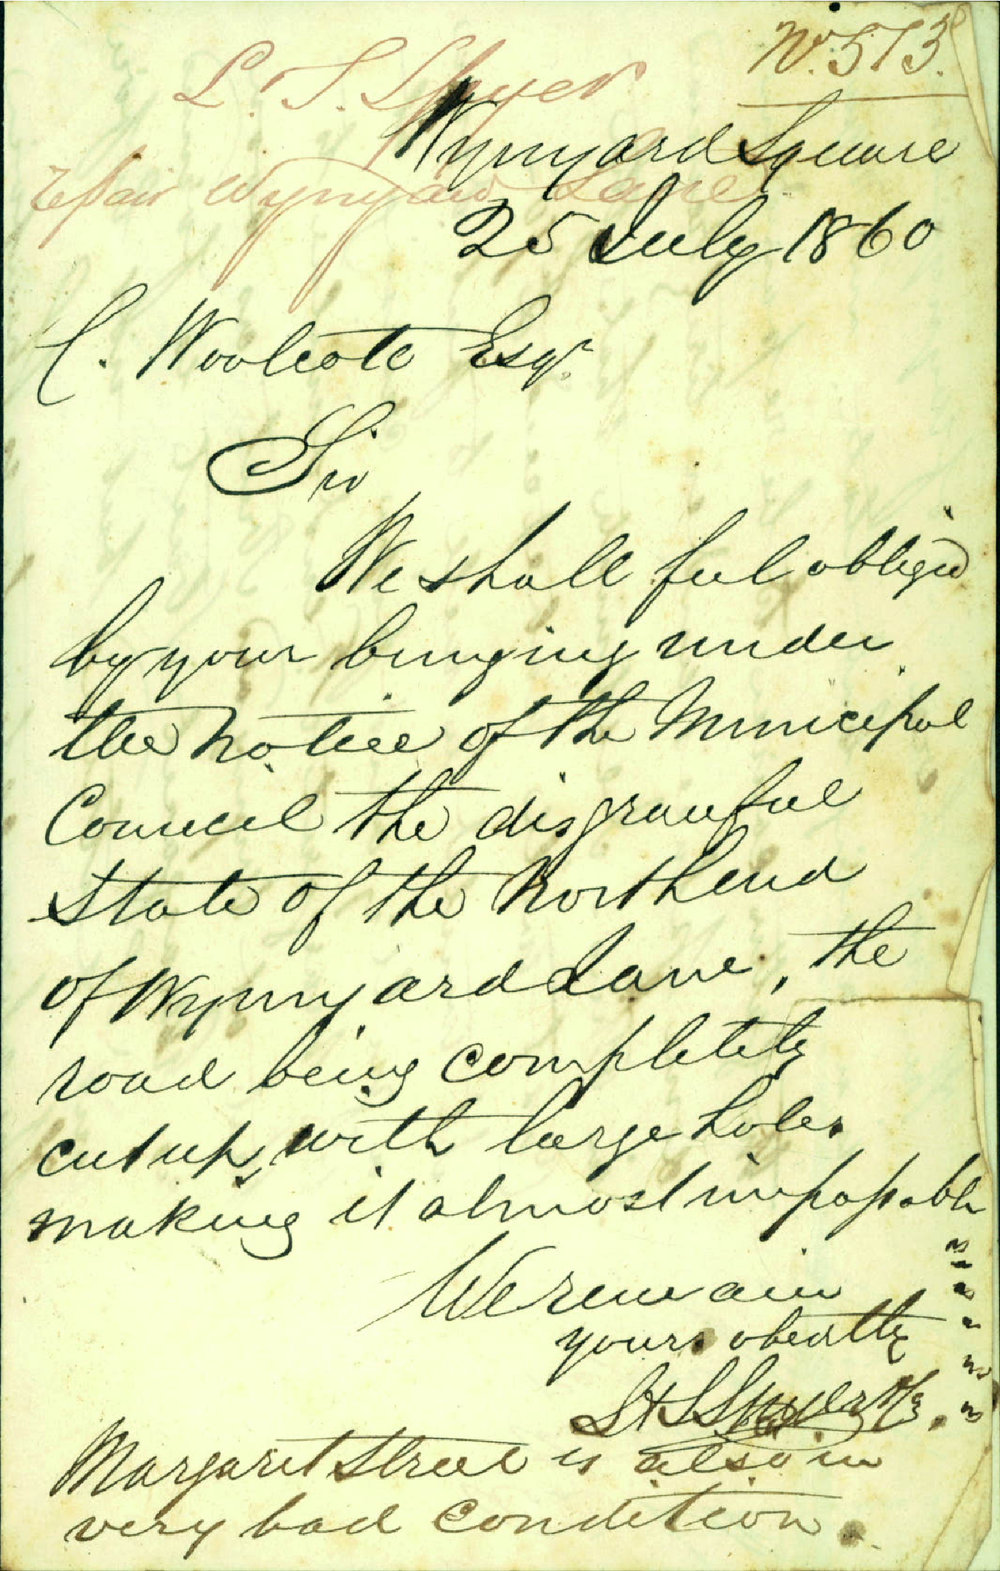 No. 573.
L. S. Spyer
Wynyard Square
repair Wynyard Lane
25 July 1860
C. Woolcott Esqr.
Sir
We shall feel obliged
by your bringing under
the notice of the Municipal
Council the disgraceful
state of the North end
of Wynyard Lane, the
road being completely
cut up, with large holes
making it almost impassable
We remain
yours obedtly
L & S Spyer & Co.
Margaret Street is also in
very bad condition.